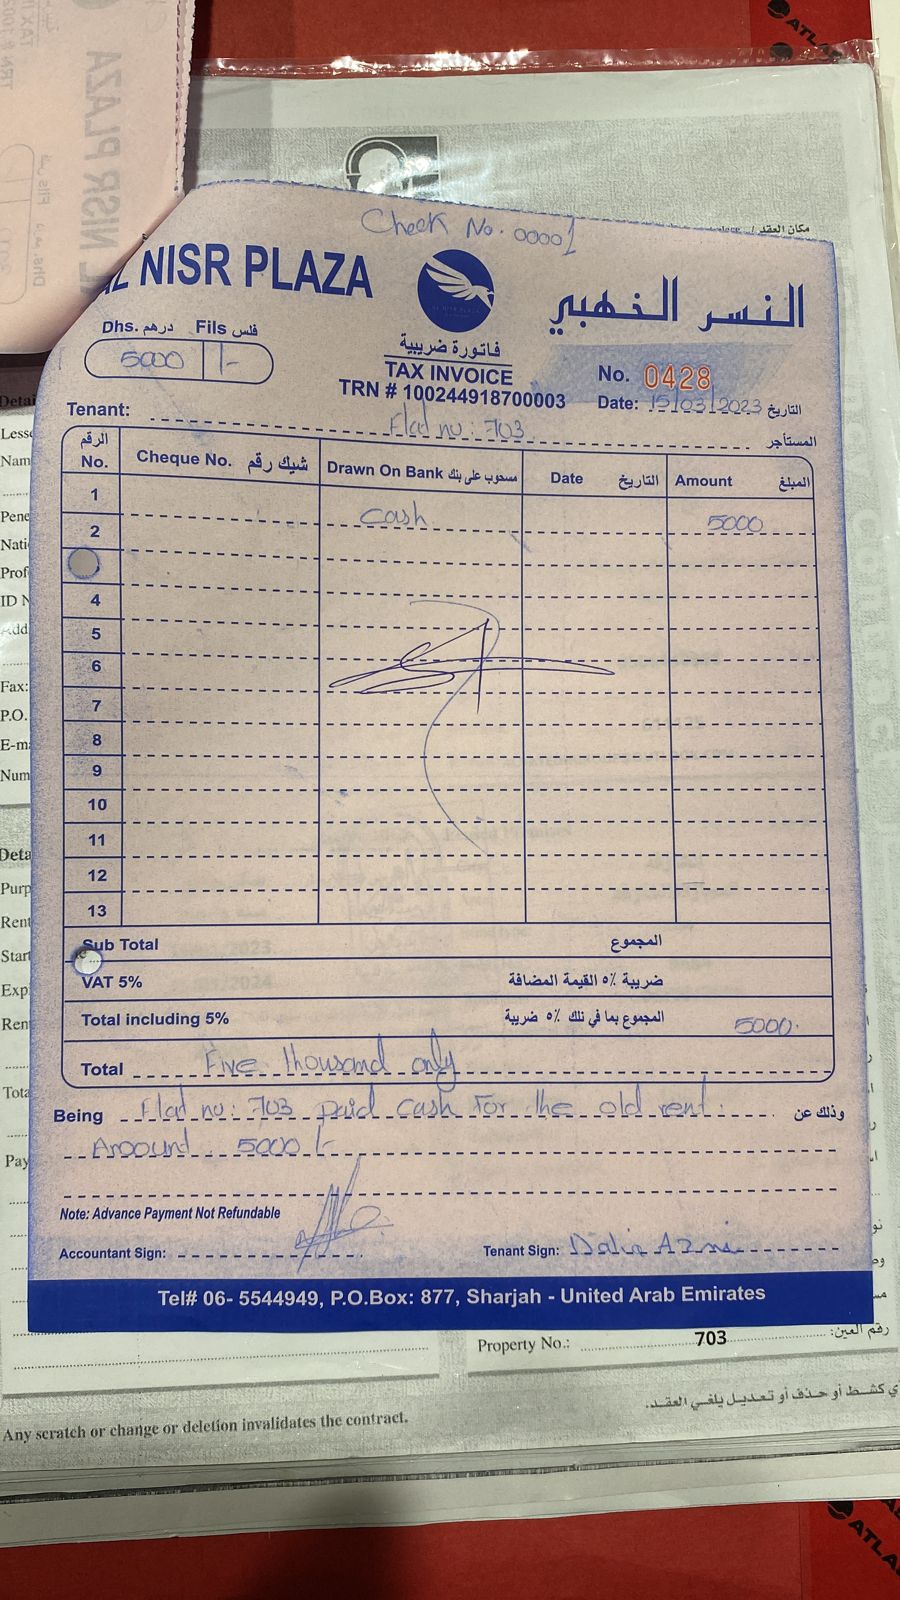 Check No. 00001
AL NISR PLAZA
النسر الذهبي
Dhs. درهم Fils فلس
5000 /-
فاتورة ضريبية
TAX INVOICE
TRN # 100244918700003
No. 0428
Date: 15/03/2023 التاريخ
Tenant: Flat no: 703 المستأجر
الرقم No. Cheque No. شيك رقم Drawn On Bank مسحوب على بنك Date التاريخ Amount المبلغ
1
2 Cash 5000
4
5
6
7
8
9
10
11
12
13
Sub Total المجموع
VAT 5% ضريبة ٥٪ القيمة المضافة
Total including 5% المجموع بما في تلك ٥٪ ضريبة 5000
Total Five thousand only
Being Flat no: 703 paid cash for the old rent. وذلك عن
Amount 5000 /-
Note: Advance Payment Not Refundable
Accountant Sign:
Tenant Sign: Dalia Azmi
Tel# 06- 5544949, P.O.Box: 877, Sharjah - United Arab Emirates
Property No.: 703 رقم العين:
Any scratch or change or deletion invalidates the contract.
كشط أو حذف أو تعديل يلغي العقد.
مكان العقد
Fax:
P.O.
ATLA